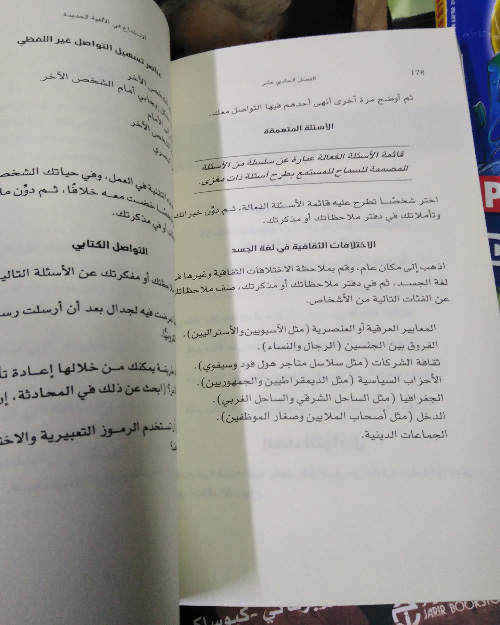 178
الفصل الحادي عشر
ثم أوضح مرة أخرى أنهى أحدهم فيها التواصل معك.
الأسئلة المتعمقة
قائمة الأسئلة الفعالة عبارة عن سلسلة من الأسئلة
المصممة للسماح للمستمع بطرح أسئلة ذات مغزى.
اختر شخصًا تطرح عليه قائمة الأسئلة الفعالة، ثم دوِّن خبراتك
وتأملاتك في دفتر ملاحظاتك أو مذكرتك.
الاختلافات الثقافية في لغة الجسد
اذهب إلى مكان عام، وقم بملاحظة الاختلافات الثقافية وغيرها في
لغة الجسد، ثم في دفتر ملاحظاتك أو مذكرتك، صف ملاحظاتك
عن الفئات التالية من الأشخاص.
المعايير العرقية أو العنصرية (مثل الآسيويين والأستراليين).
الفروق بين الجنسين (الرجال والنساء).
ثقافة الشركات (مثل سلاسل متاجر هول فود وسيفوي).
الأحزاب السياسية (مثل الديمقراطيين والجمهوريين).
الجغرافيا (مثل الساحل الشرقي والساحل الغربي).
الدخل (مثل أصحاب الملايين وصغار الموظفين).
الجماعات الدينية.
الاستماع في الألفية الجديدة
عناصر تسهيل التواصل غير اللفظي
الشخص الآخر
إيجابي أمام الشخص الآخر
الأمام
الآخر
التقنية في العمل، وفي حياتك الشخصية
خضت معه خلافًا، ثم دوِّن
أو في مذكرتك.
التواصل الكتابي
أو مفكرتك عن الأسئلة التالية
فيه لجدال بعد أن أرسلت
يمكنك من خلالها إعادة
(ابحث عن ذلك في المحادثة،
تستخدم الرموز التعبيرية
JARIR BOOKSTORE